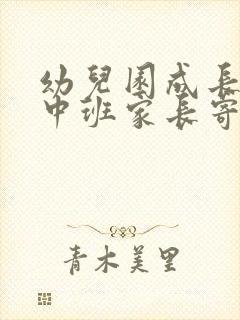 幼兒園成長
中班家長寄
青木美里